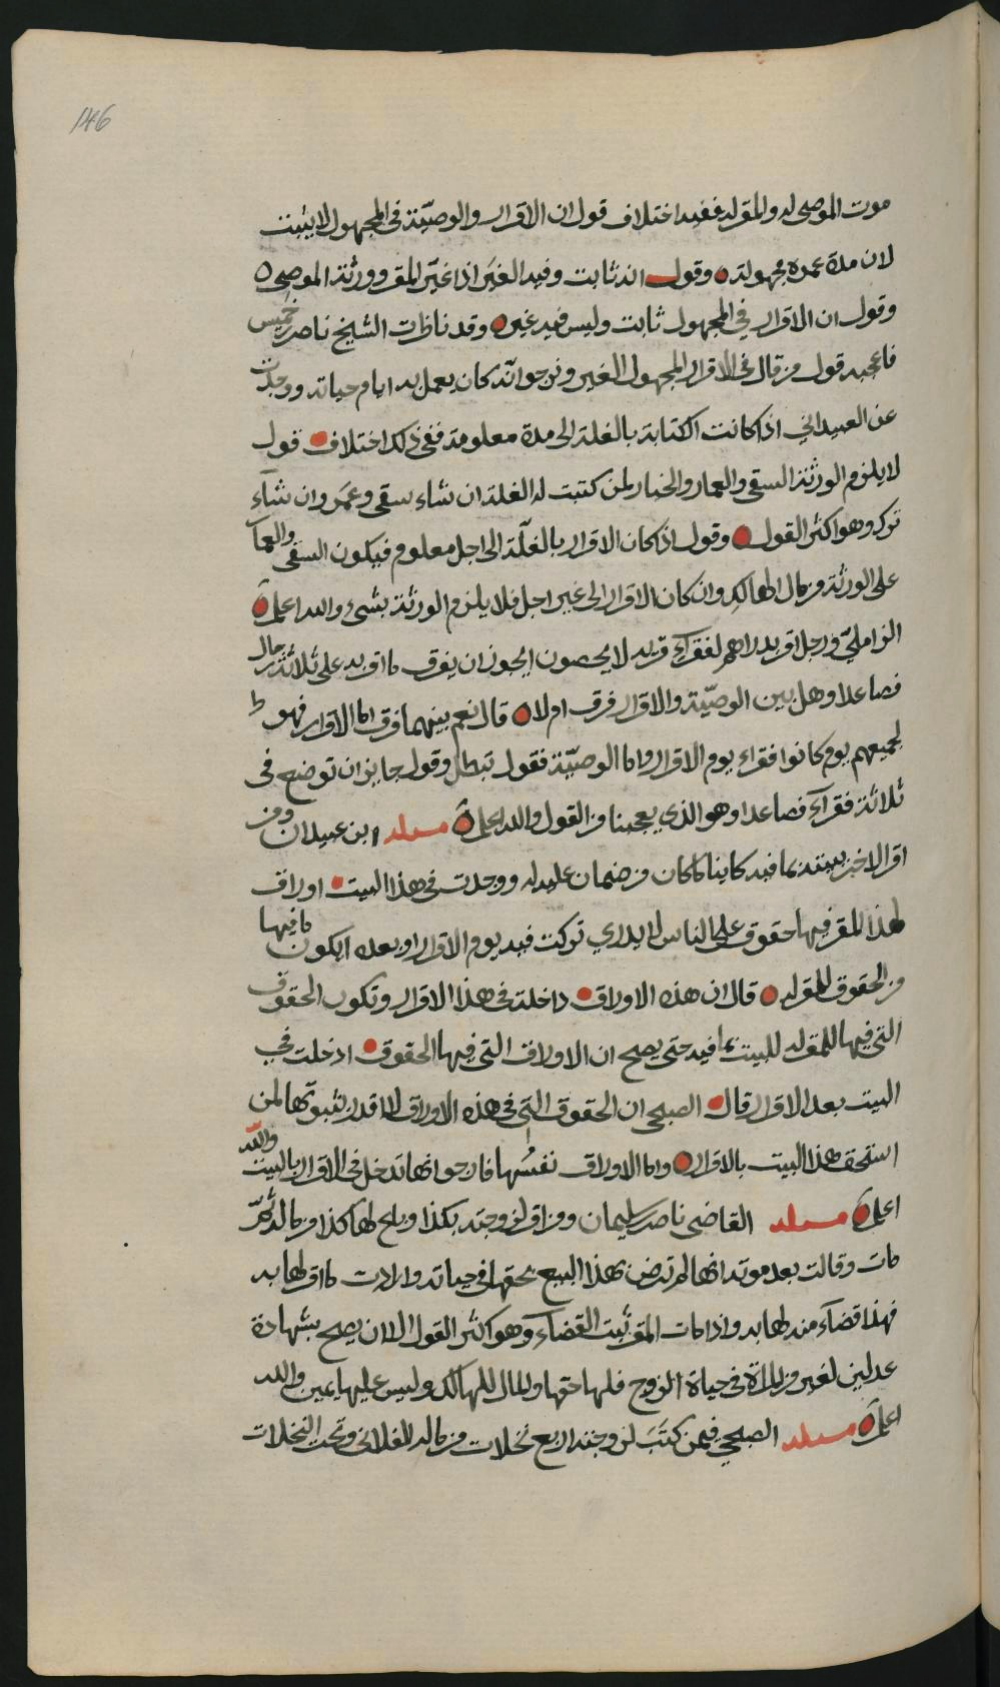 146
موت الموصى له والمقر له ففيه اختلاف قول ان الاقرار والوصيّة في المجهول لا يثبت
لان مدة عمره مجهولة وقول انه ثابت وفيه الغير اذا غيّر المقر وورثة الموصي
وقول ان الاقرار في المجهول ثابت وليس فيه غير وقد ناظرت الشيخ ناصر خميس
فاعجبه قول من قال في الاقرار المجهول الغير ونرجو انّه كان يعمل به ايام حياته ووجدت
عن العبيداني اذا كانت الكتابة بالغلة الى مدة معلومة ففي ذلك اختلاف قول
لا يلزم الورثة السقي والعمار والخيار لمن كتبت له الغلة ان شاء سقى وعمر وان شآء
ترك وهو اكثر القول وقول اذا كان الاقرار بالغلّة الى اجل معلوم فيكون السقي والعمار
على الورثة من مال الهالك وان كان الاقرار الى غير اجل فلا يلزم الورثة بشيء والله اعلم
الزاملي ورجل اقر بدراهم لفقراء قرية لا يحصون ايجوز ان يفرق ما اقر به على ثلاثة رجال
فصاعدا وهل بين الوصيّة والاقرار فرق ام لا قال نعم بينهما فرق اما الاقرار فهو
لجميعهم يوم كانوا فقراء يوم الاقرار واما الوصيّة فقول تبطل وقول جايز ان توضع في
ثلاثة فقرآء فصاعدا وهو الذي يعجبنا من القول والله اعلم مسئلة ابن عبيدان ومن
اقر لاخر ببيته بما فيه كاينا ما كان من ضمان عليه له ووجدت في هذا البيت اوراق
لهذا المقر فيها حقوق على الناس لا يدري تركت فيه يوم الاقرار او بعده ايكون ما فيها
من الحقوق للمقر له قال ان هذه الاوراق داخلة في هذا الاقرار وتكون الحقوق
التي فيها للمقر له للبيت بما فيه حتى يصح ان الاوراق التي فيها الحقوق ادخلت في
البيت بعد الاقرار قال الصبحي ان الحقوق التي في هذه الاوراق لا اقدر بثبوتها لمن
استحق هذا البيت بالاقرار واما الاوراق نفسُها فارجو انها تدخل في الاقرار بالبيت والله
اعلم مسئلة القاضي ناصر سليمان ومن اقر لزوجته بكذا وبلح لها كذا من ماله ثمّ
مات وقالت بعد موته انها لم ترض بهذا البيع بحقها في حياته وارادت ما اقر لها به
فهذا قضآء منه لها به واذا مات المقر ثبت القضآء وهو اكثر القول الا ان يصح بشهادة
عدلين لغير من المراة في حياة الزوج فلها حقها والمال للهالك وليس عليها يمين والله
اعلم مسئلة الصبحي فيمن كتَبَ لزوجته اربع نخلات من ماله الفلاني وتحت النخلات